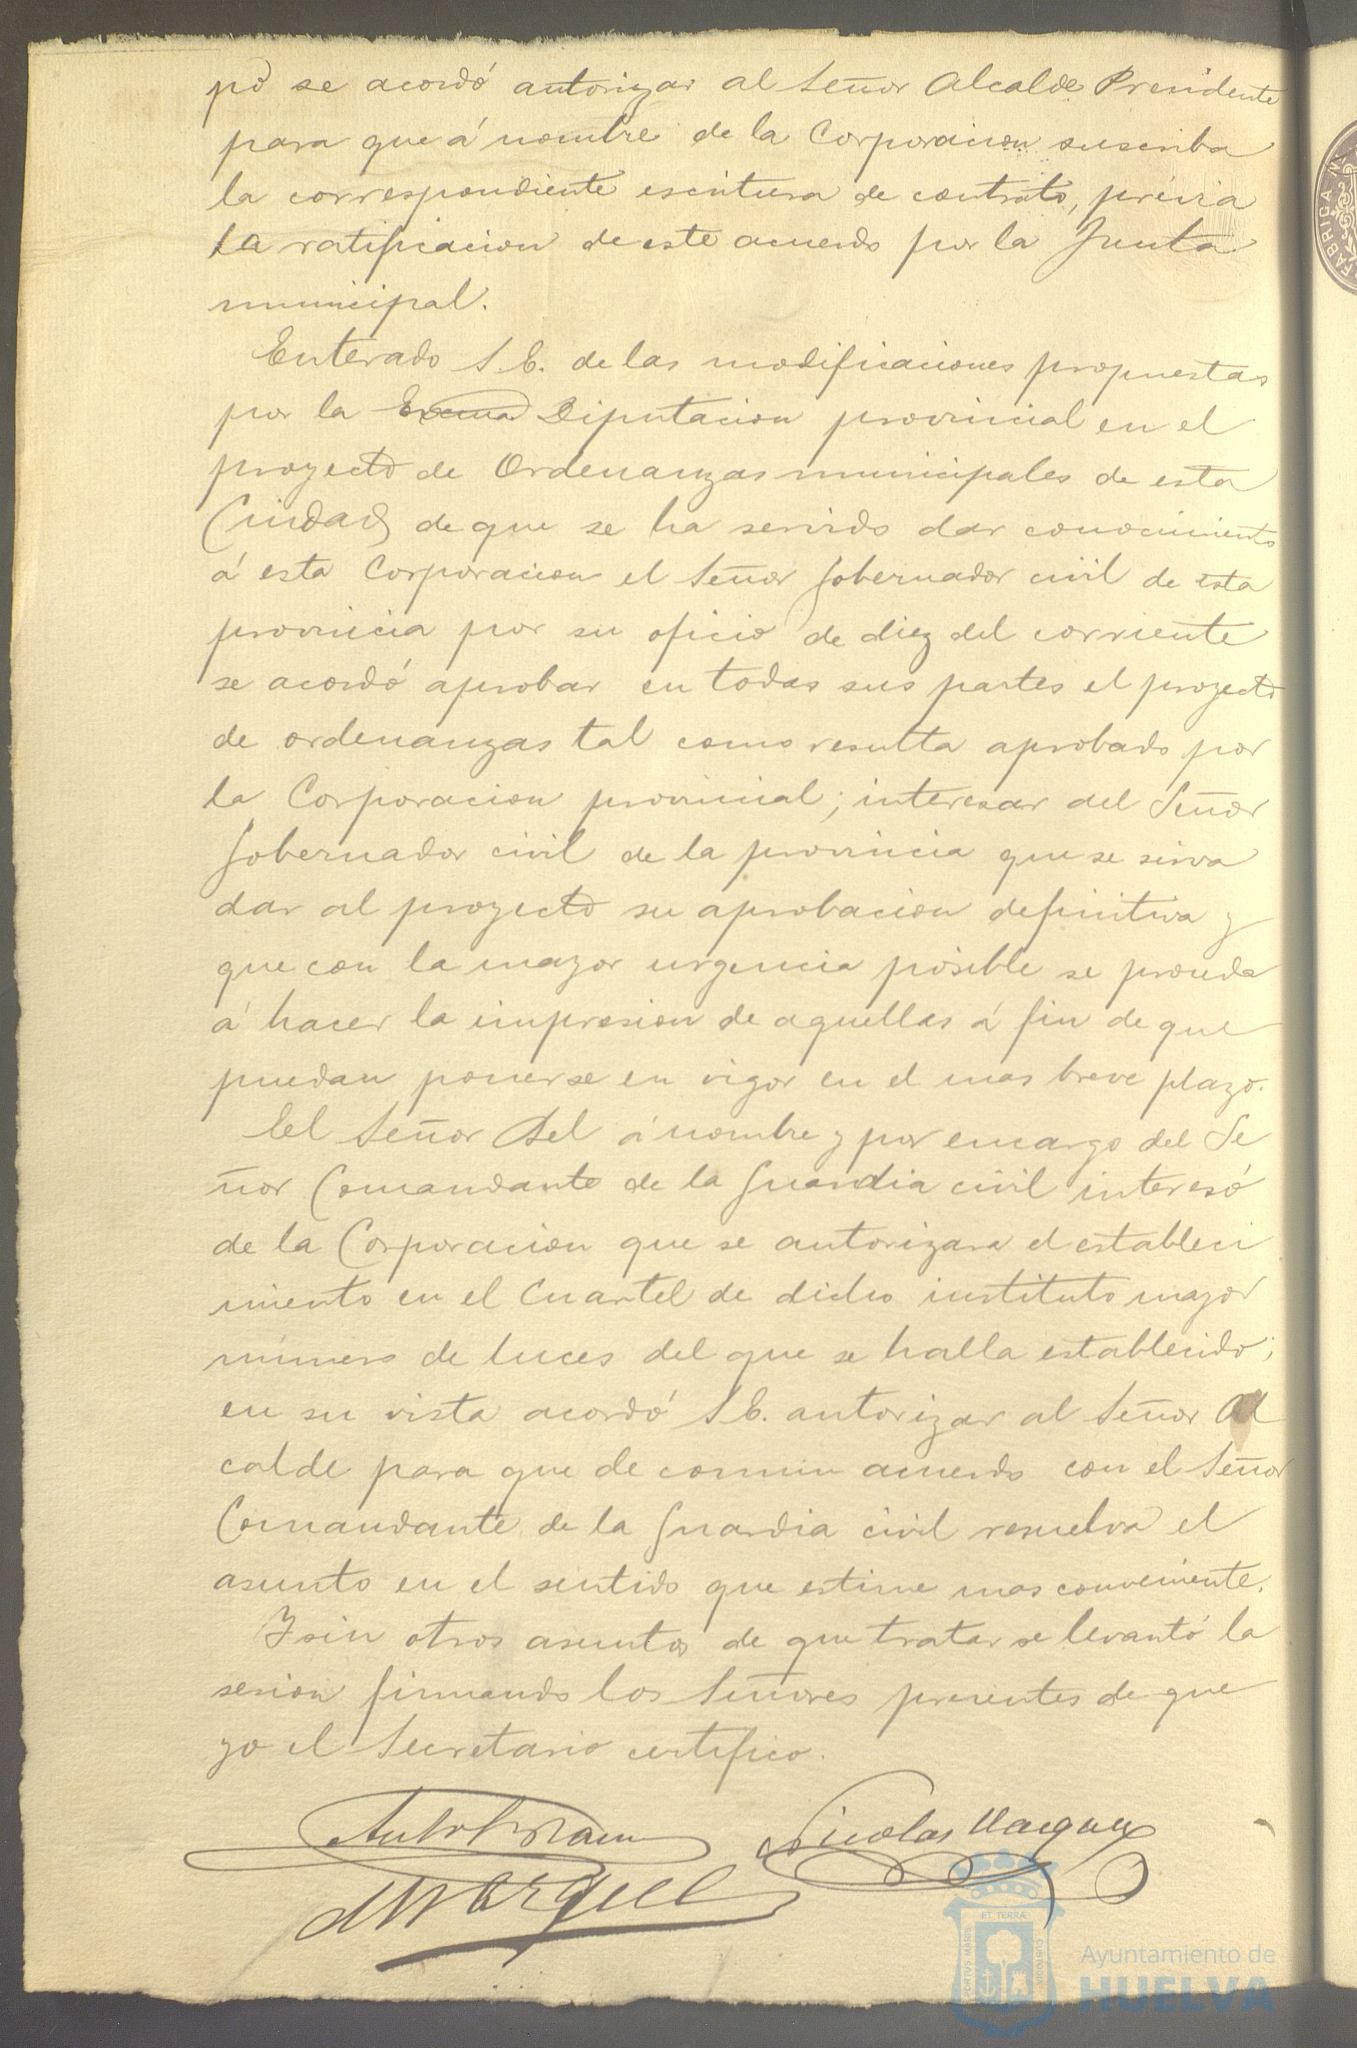 pó se acordó autorizar al Señor Alcalde Presidente
para que á nombre de la Corporacion suscriba
la correspondiente escritura de contrato, prévia
la ratificacion de este acuerdo por la Junta
municipal.
Enterado S. E. de las modificaciones propuestas
por la Excma Diputacion provincial en el
proyecto de Ordenanzas municipales de esta
Ciudad de que se ha servido dar conocimiento
á esta Corporacion el Señor Gobernador civil de esta
provincia por su oficio de diez del corriente
se acordó aprobar en todas sus partes el proyecto
de ordenanzas tal como resulta aprobado por
la Corporacion provincial; interesar del Señor
Gobernador civil de la provincia que se sirva
dar al proyecto su aprobacion definitiva y
que con la mayor urgencia posible se proceda
á hacer la impresion de aquellas á fin de que
puedan ponerse en vigor en el mas breve plazo.
El Señor Bel á nombre y por encargo del Se
ñor Comandante de la Guardia civil interesó
de la Corporacion que se autorizara el estableci
miento en el Cuartel de dicho instituto mayor
número de luces del que se halla establecido;
en su vista acordó S. E. autorizar al Señor Al
calde para que de comun acuerdo con el Señor
Comandante de la Guardia civil resuelva el
asunto en el sentido que estime mas conveniente.
Y sin otros asuntos de que tratar se levantó la
sesion firmando los Señores presentes de que
yo el Secretario certifico.
Nicolas Vazquez
Marquez
FABRICA N
PORTUS MARIS ET TERRÆ CUSTODIA
Ayuntamiento de
HUELVA